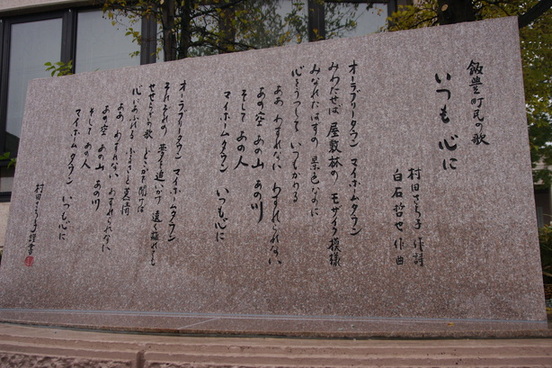 飯豊町民の歌
いつも 心に
村田さち子 作詩
白石哲也 作曲
オーラブリータウン マイホームタウン
みわたせば 屋敷林の モザイク模様
みなれたはずの 景色なのに
心をうつして いつもかわる
ああ わすれない わすれられない
あの空 あの山 あの川
そして あの人
マイホームタウン いつも心に
オーラブリータウン マイホームタウン
それぞれの 夢を追いかけ 遠く離れても
せせらぎの歌 どこかで聞けば
心にあふれる 慕情
ああ わすれない わすれられない
あの空 あの山 あの川
そして あの人
マイホームタウン いつも心に
村田さち子 謹書